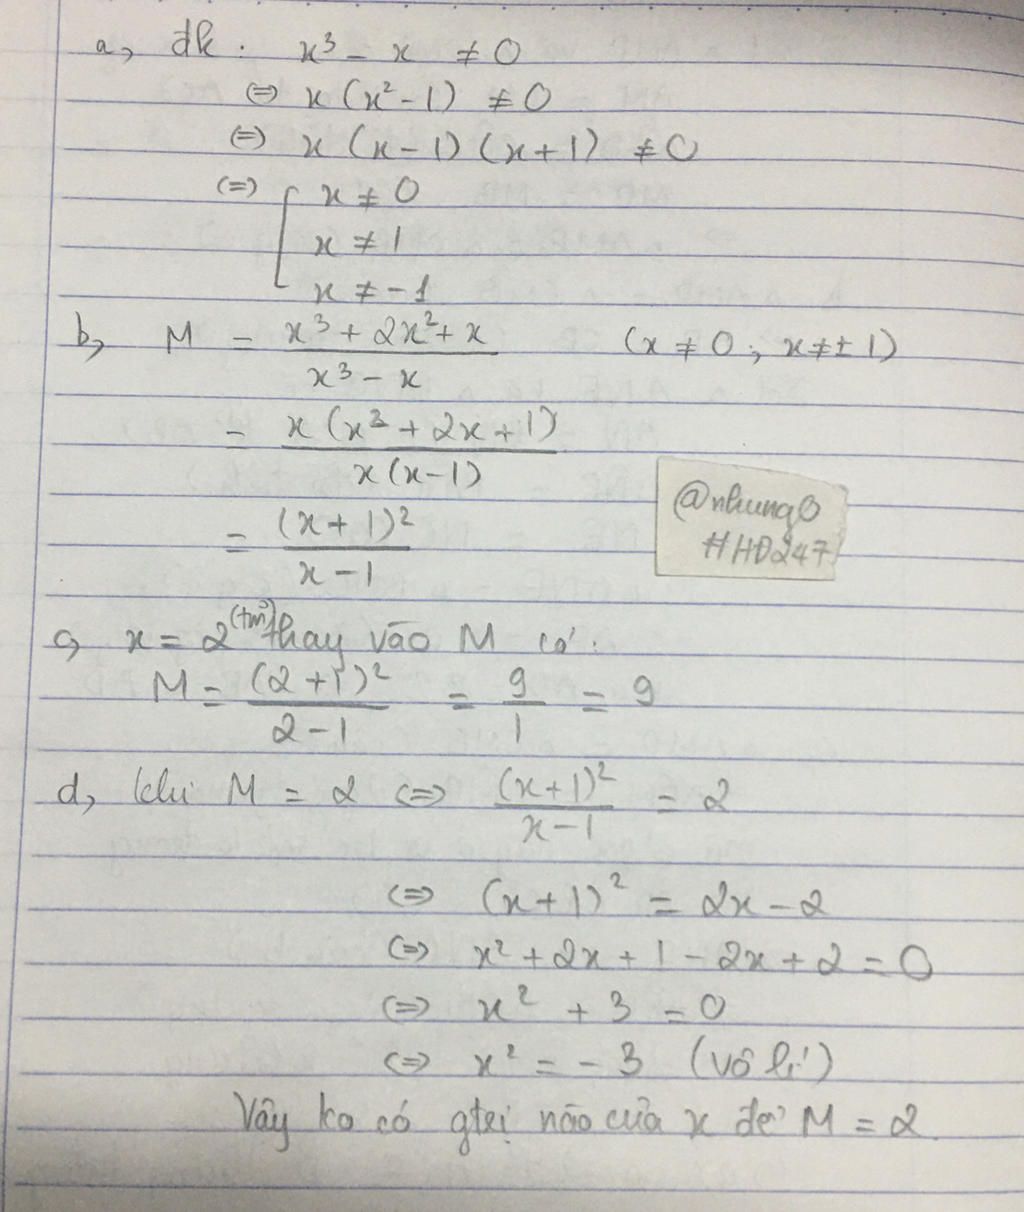 a, đk : x³ - x ≠ 0
⇔ x (x² - 1) ≠ 0
⇔ x (x - 1) (x + 1) ≠ 0
⇔ [ x ≠ 0
x ≠ 1
x ≠ -1
b, M = (x³ + 2x² + x) / (x³ - x) (x ≠ 0 ; x ≠ ± 1)
= x (x² + 2x + 1) / x (x - 1)
= (x + 1)² / (x - 1)
@nhung0
#HD247
c, x = 2 (tm) thay vào M có :
M = (2 + 1)² / (2 - 1) = 9/1 = 9
d, khi M = 2 ⇔ (x + 1)² / (x - 1) = 2
⇔ (x + 1)² = 2x - 2
⇔ x² + 2x + 1 - 2x + 2 = 0
⇔ x² + 3 = 0
⇔ x² = - 3 (vô lí)
Vậy ko có gtrị nào của x để M = 2.